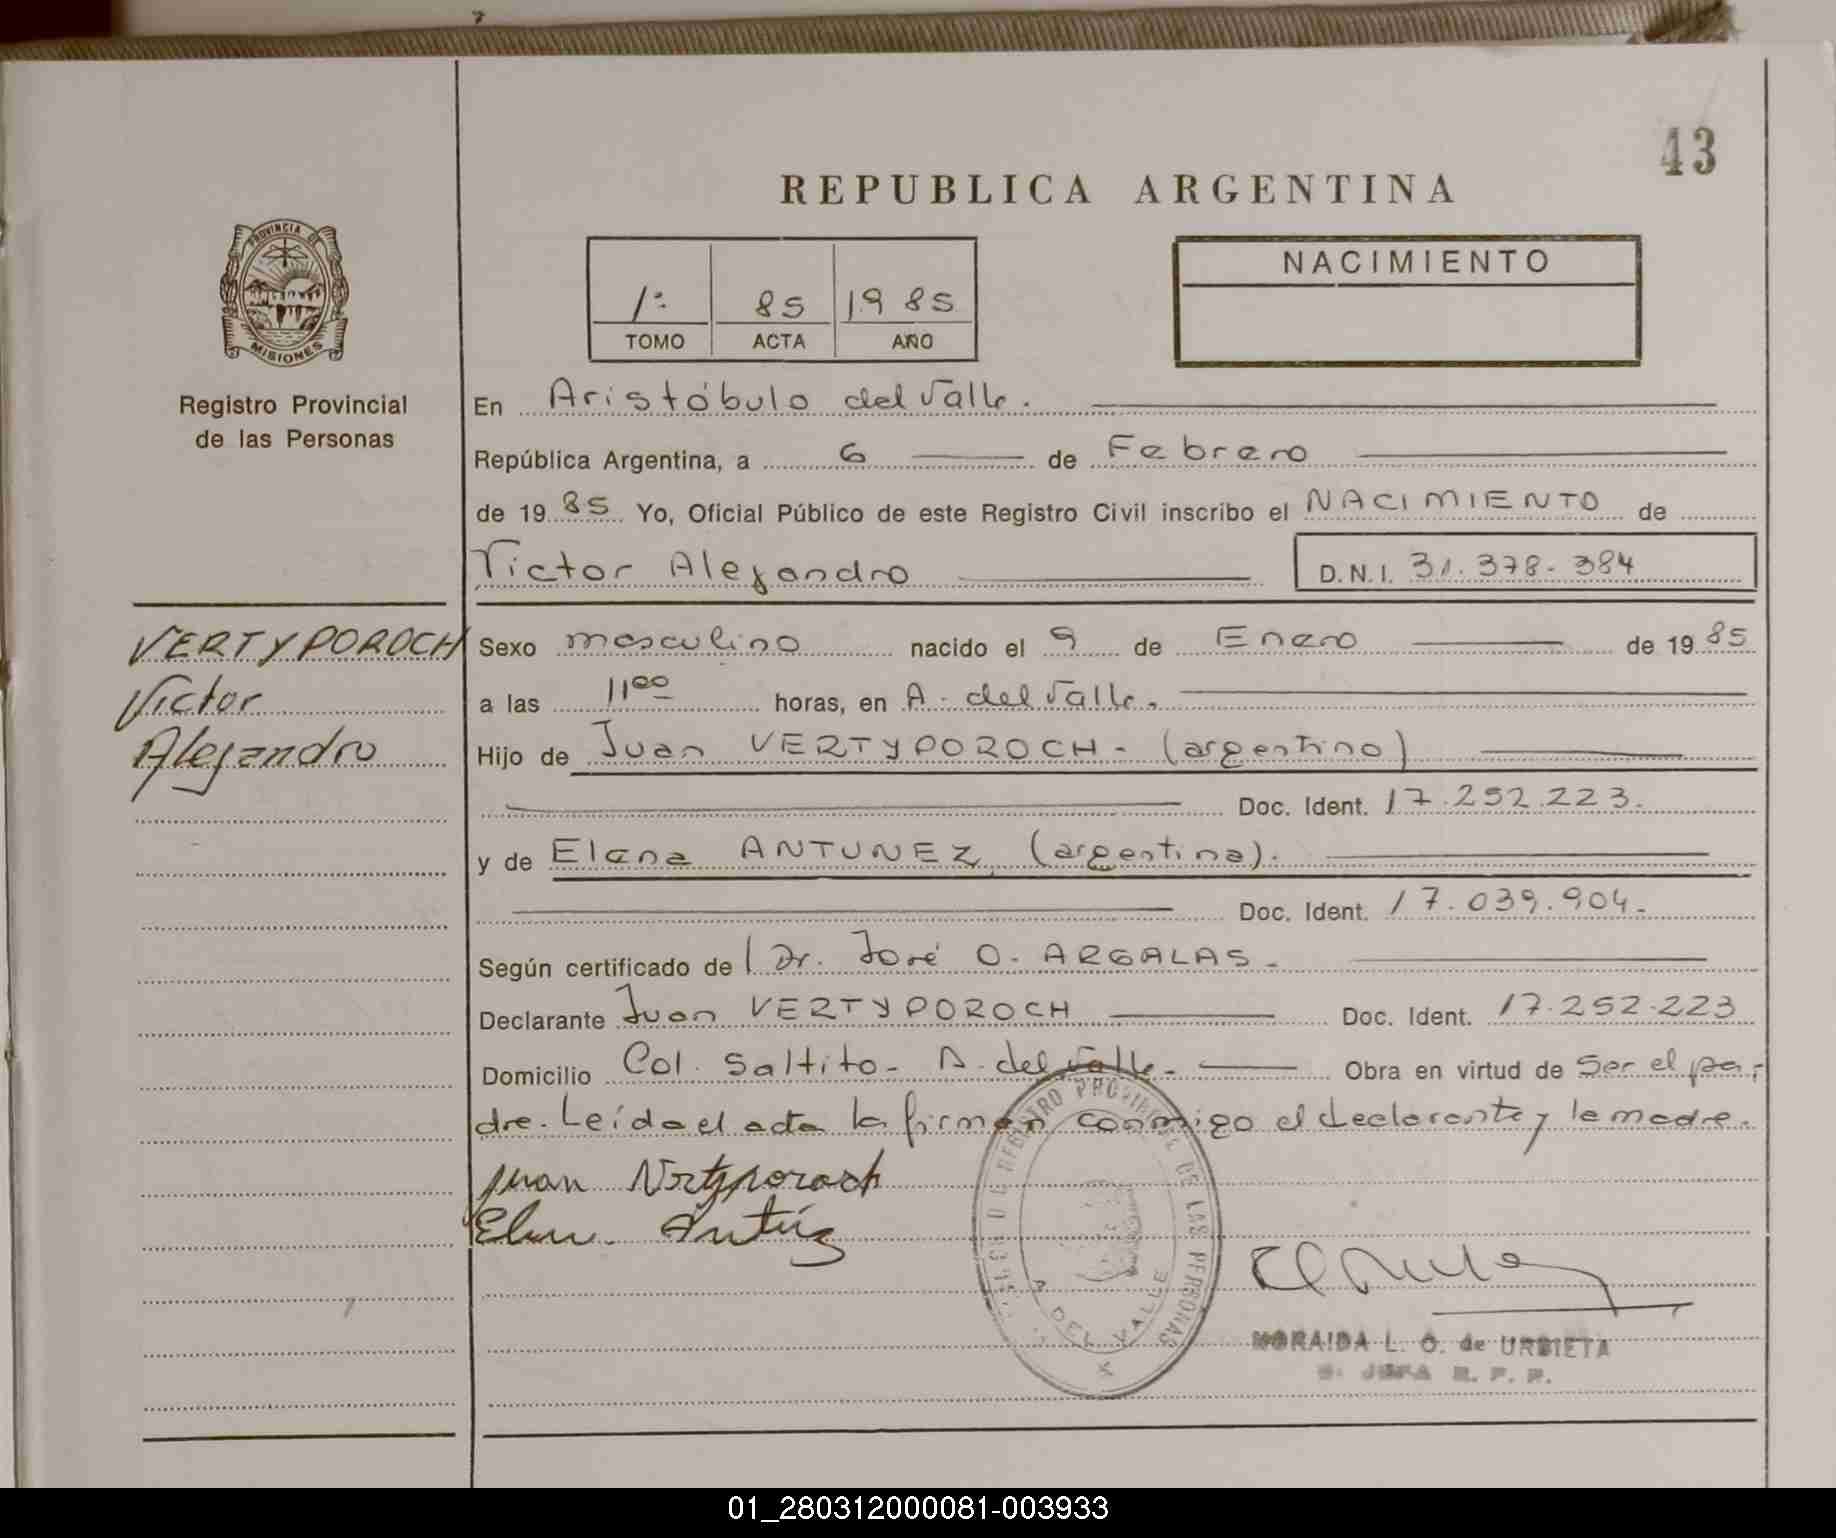 43
REPUBLICA ARGENTINA
PROVINCIA DE
MISIONES
Registro Provincial
de las Personas
1º 85 1985
TOMO ACTA AÑO
NACIMIENTO
En Aristóbulo del Valle.
República Argentina, a 6 de Febrero
de 1985 Yo, Oficial Público de este Registro Civil inscribo el NACIMIENTO de
Victor Alejandro D.N.I. 31.378.384
VERTYPOROCH
Victor
Alejandro
Sexo masculino nacido el 9 de Enero de 1985
a las 11 00 horas, en A. del Valle.
Hijo de Juan VERTYPOROCH - (argentino)
Doc. Ident. 17.252.223.
y de Elena ANTUNEZ (argentina).
Doc. Ident. 17.039.904.-
Según certificado de Dr. José O. ARGALAS -
Declarante Juan VERTYPOROCH Doc. Ident. 17.252.223
Domicilio Col. Saltito - A. del Valle. - Obra en virtud de ser el pa-
dre. Leída el acta la firman conmigo el declarante y la madre.
Juan Vertyporoch
Elena Antúnez
REGISTRO PROVINCIAL DE LAS PERSONAS
A. DEL VALLE
MORAIDA L. O. de URBIETA
JEFA R. P. P.
01_280312000081-003933